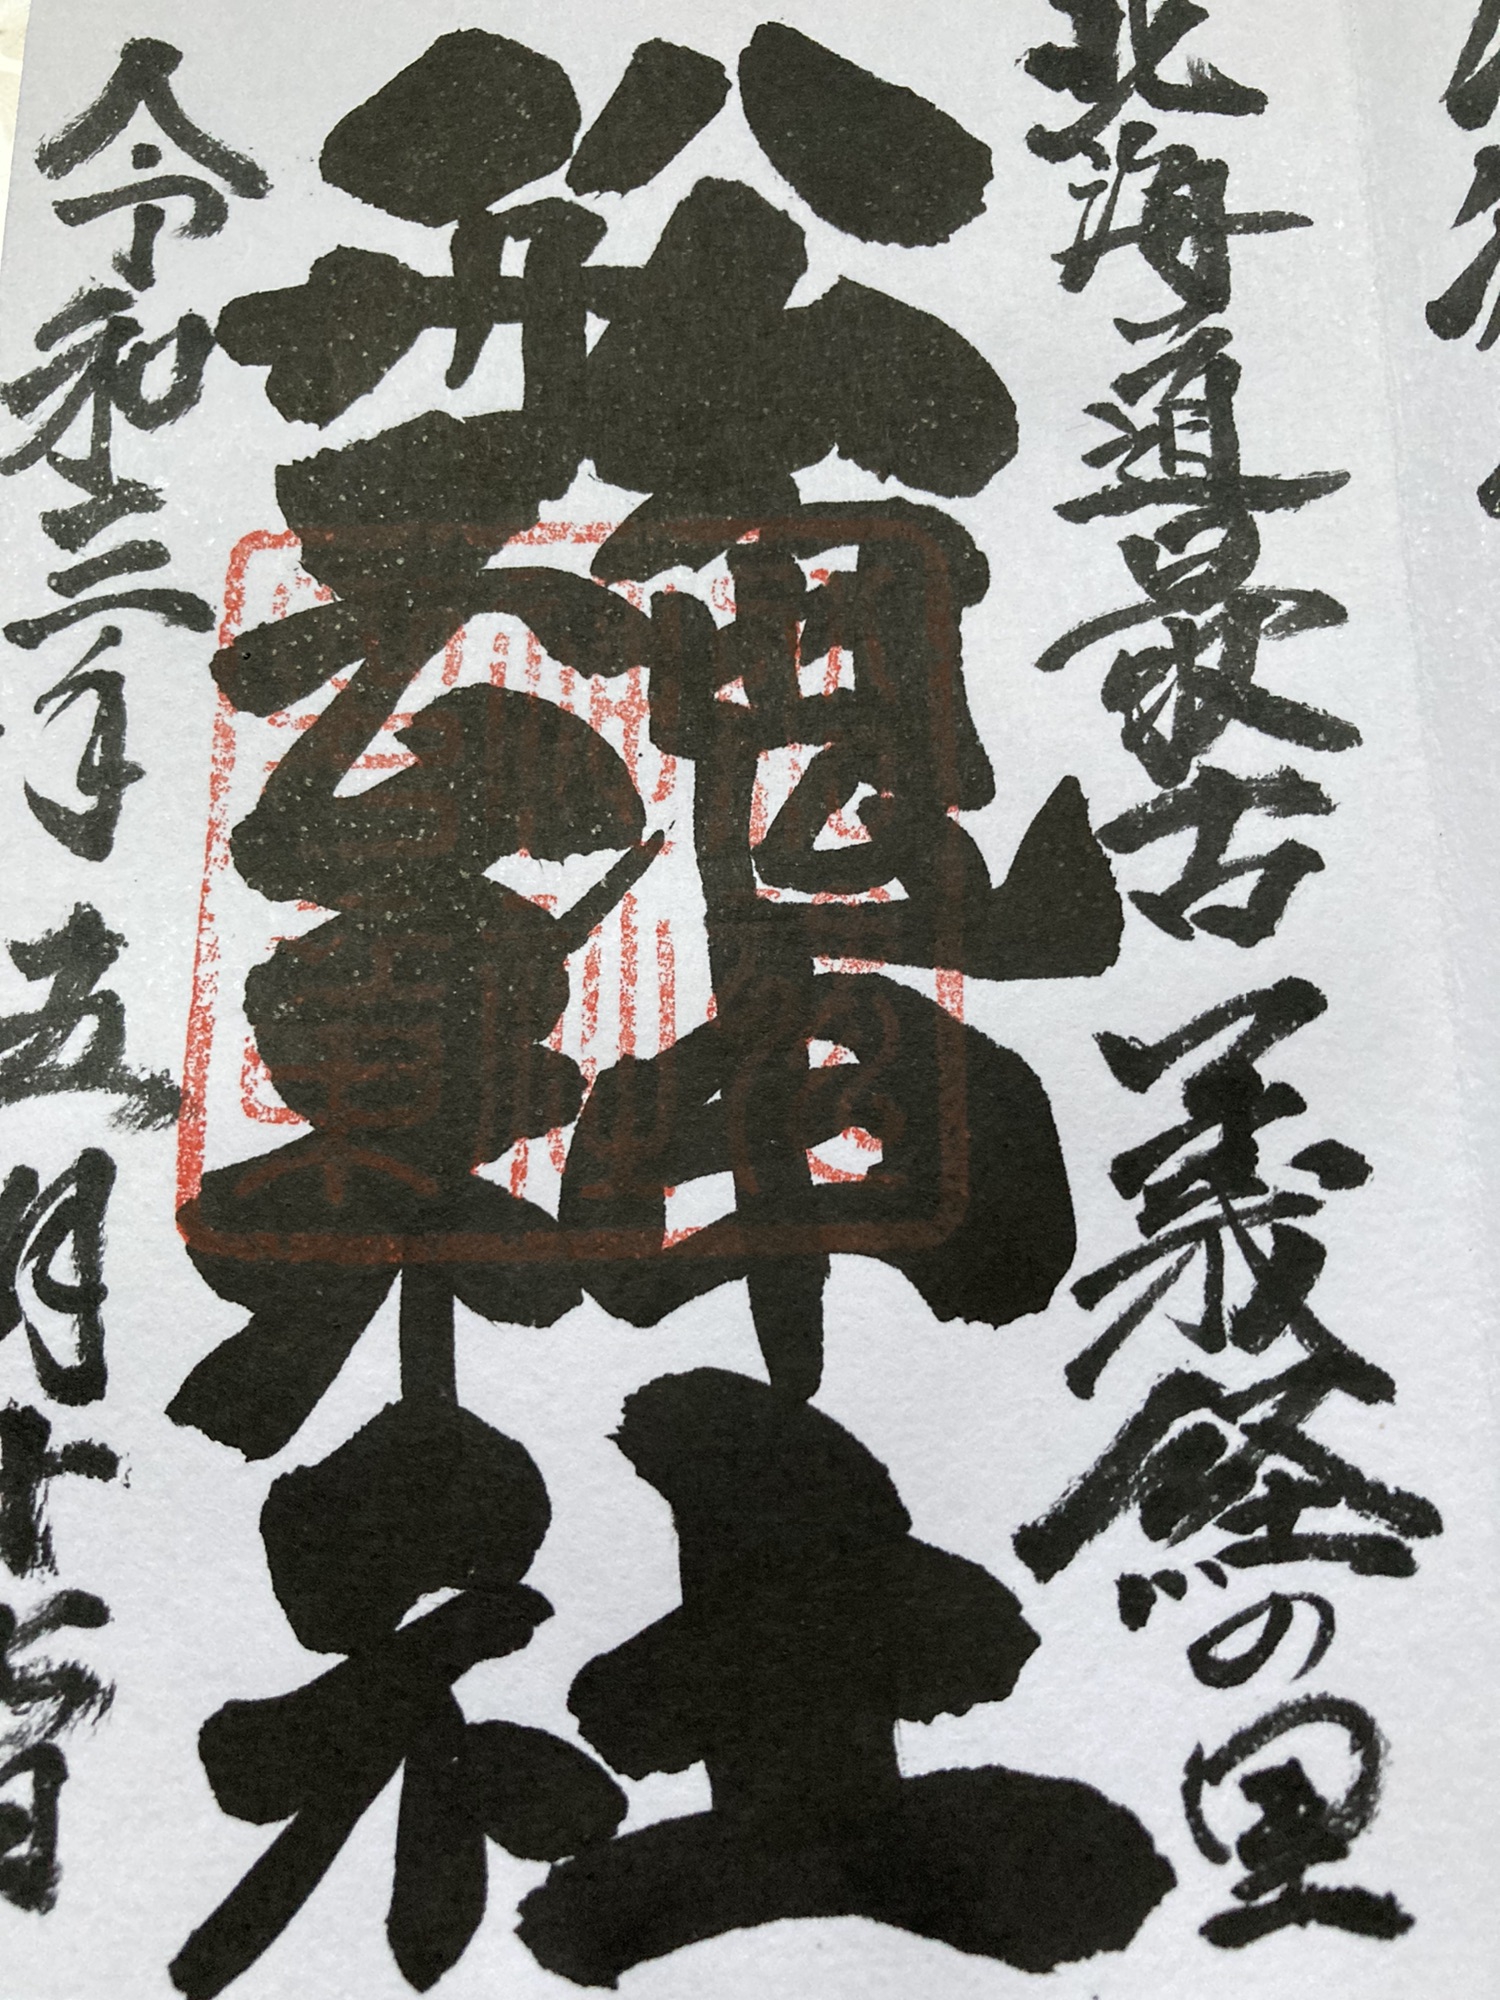 北海道最古 義経の里
舩魂神社
令和三年 五月十 日